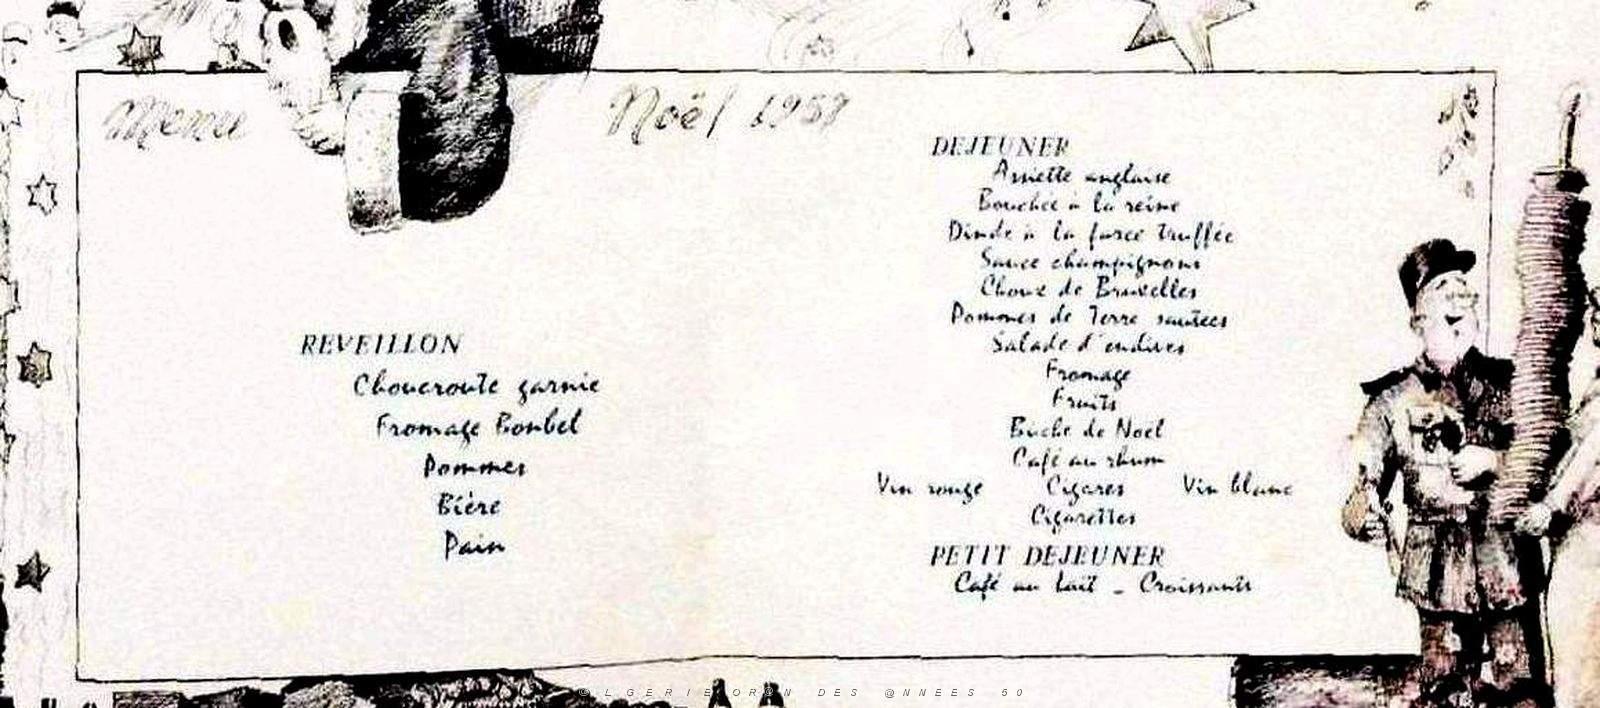 Menu
Noël 1959
REVEILLON
Choucroute garnie
Fromage Bonbel
Pommes
Bière
Pain
DEJEUNER
Assiette anglaise
Bouchée à la reine
Dinde à la farce truffée
Sauce champignons
Choux de Bruxelles
Pommes de Terre sautées
Salade d'endives
Fromage
Fruits
Buche de Noel
Café au rhum
Vin rouge Cigares Vin blanc
Cigarettes
PETIT DEJEUNER
Café au lait - Croissants
@LGERIE OR@N DES @NNEES 50